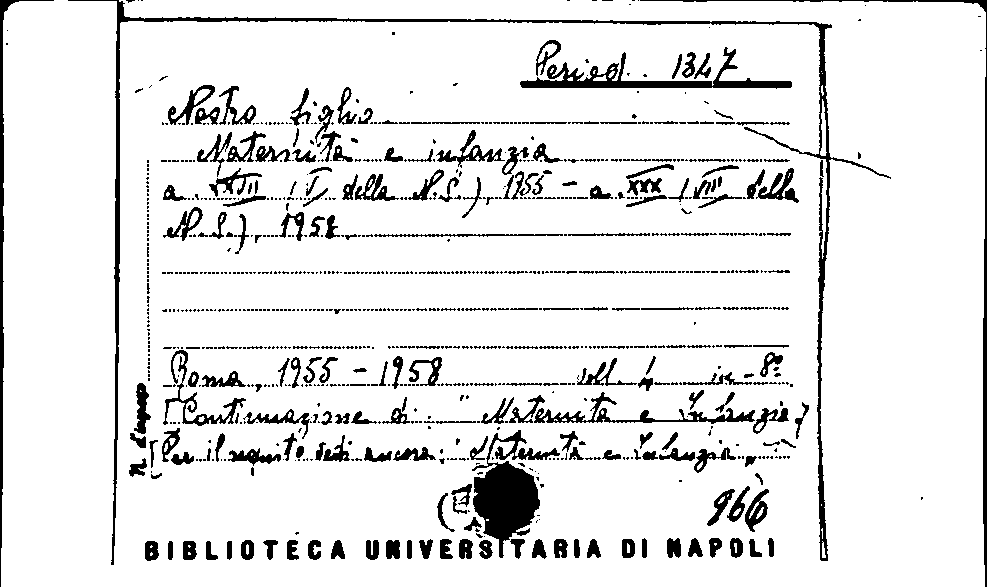 Period. 1347.
Nostro figlio.
Maternità e infanzia.
a. XXVII (I della N.S.), 1955 - a. XXX (VIII della
N.S.), 1958.
Roma, 1955 - 1958 voll. 4 in-8º.
[Continuazione di: "Maternità e Infanzia"]
[Per il seguito vedi ancora: "Maternità e Infanzia"
N. d'ingresso
966
BIBLIOTECA UNIVERSITARIA DI NAPOLI